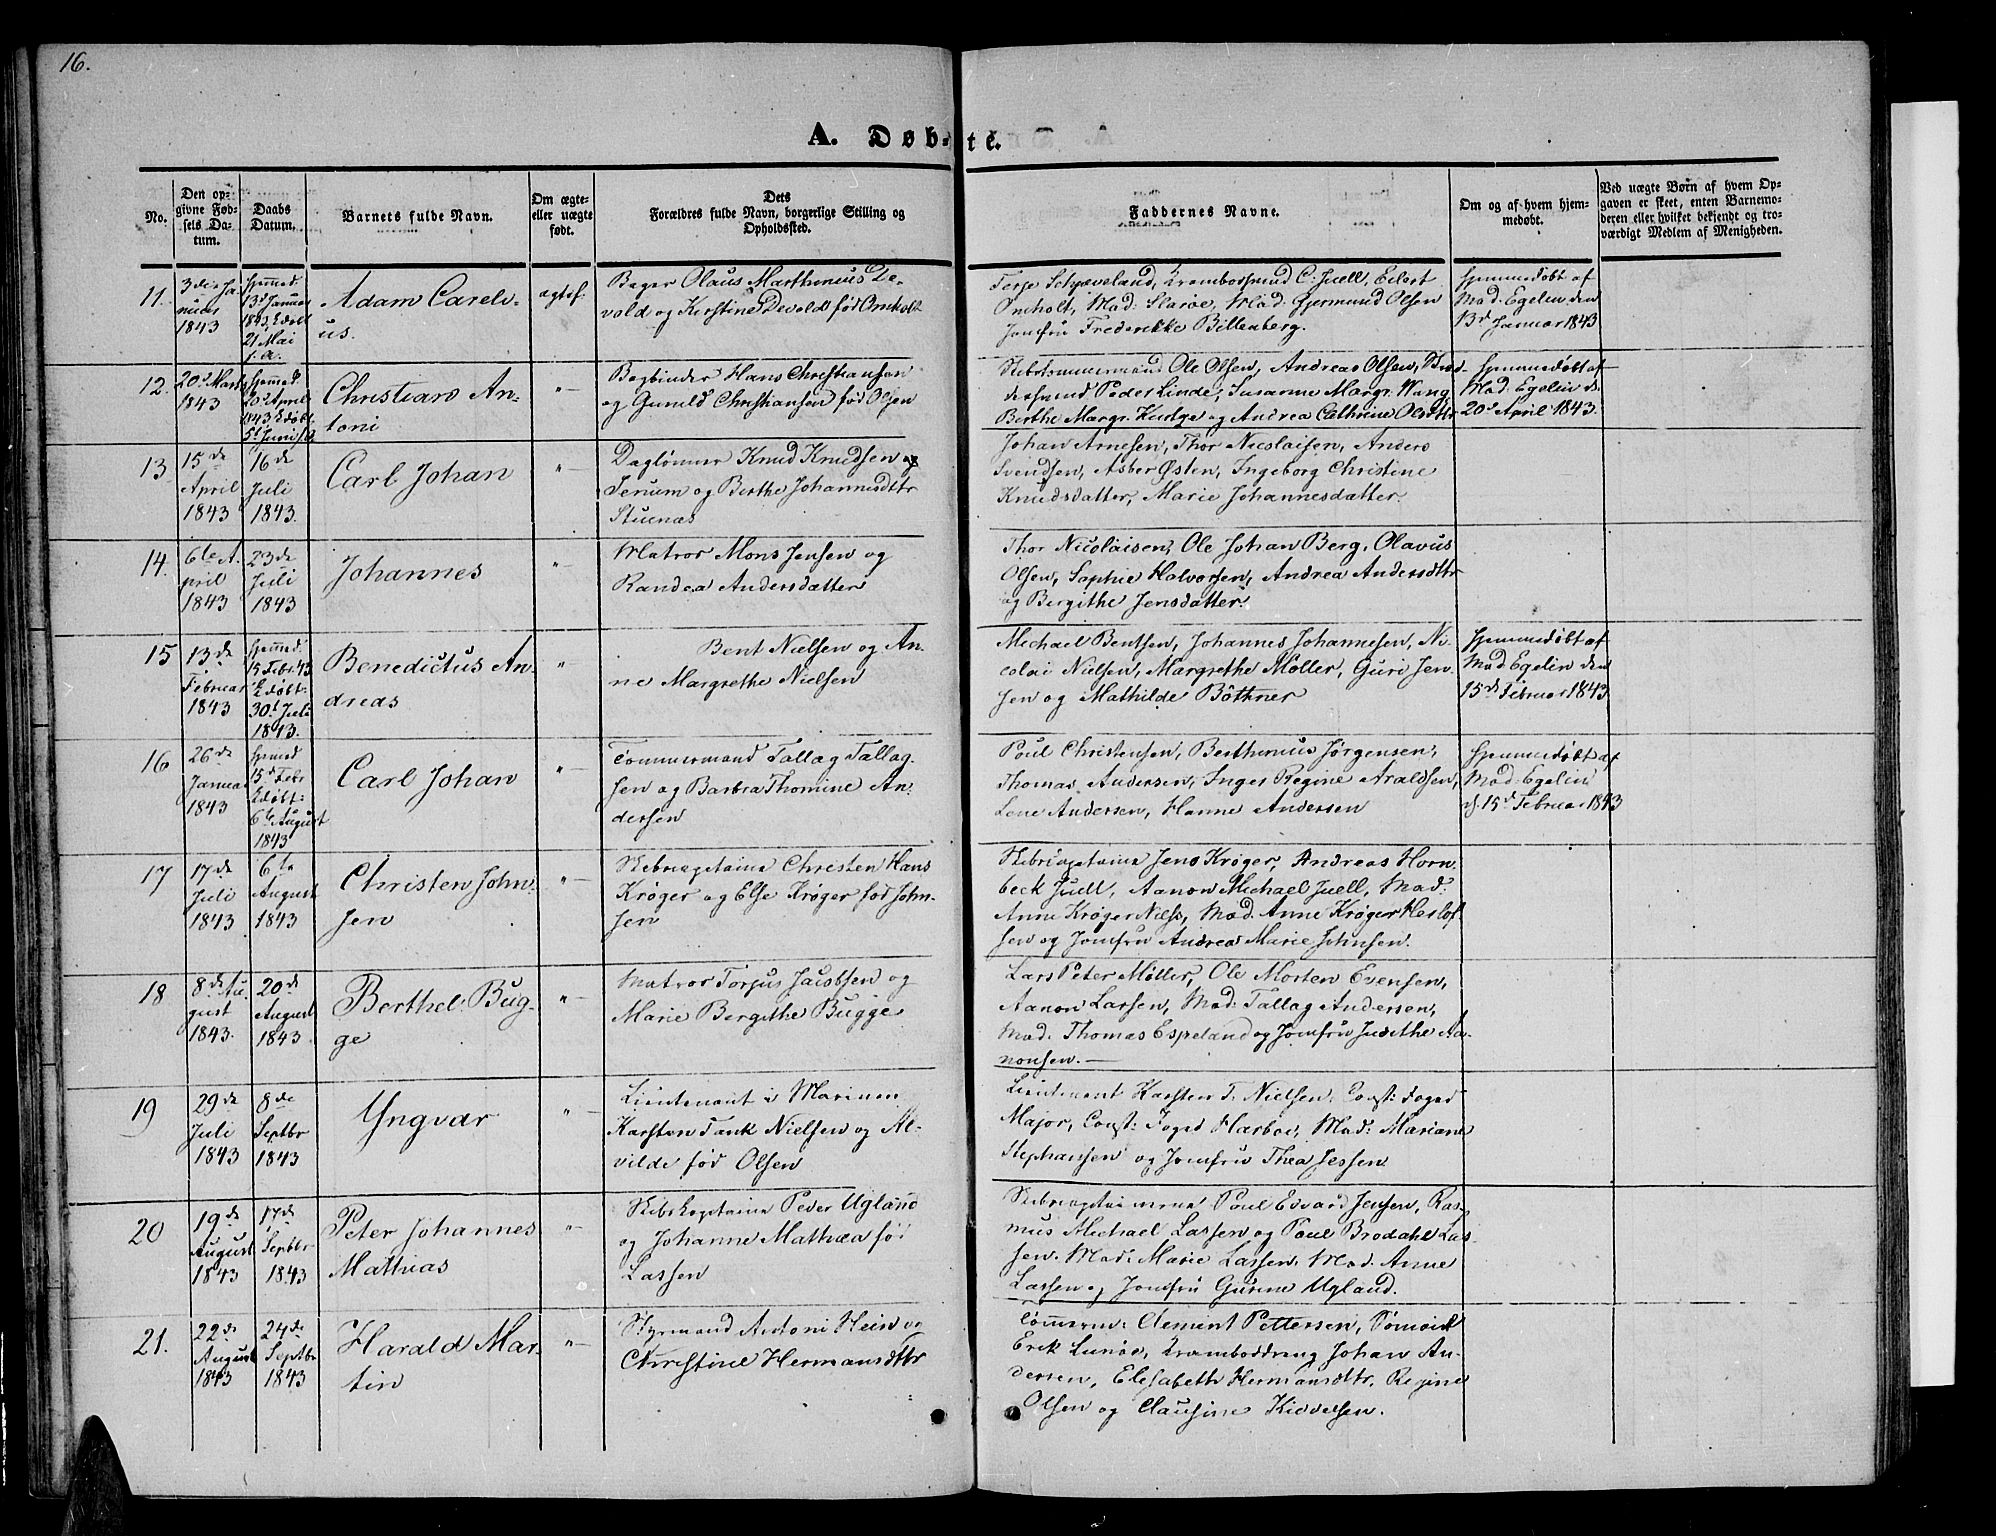 16.
A. Døb-te.
No.
Den op-
givne Fød-
sels Da-
tum.
Daabs
Datum.
Barnets fulde Navn.
Om ægte-
eller uægte
født.
Dets
Forældres fulde Navn, borgerlige Stilling og
Opholdssted.
Faddernes Navne.
Om og af hvem hjem-
medøbt.
Ved uægte Børn af hvem Op-
gaven er skeet, enten Barnemo-
deren eller hvilket bekjendt og tro-
værdigt Medlem af Menigheden.
11.
3die Ja-
nuar
1843
Hjemmed.
13d Januar
1843, Kdøbt
21 Mai
s. a.
Adam Careli-
us.
ægtef.
Bager Olaus Marthinius De-
vold og Kirstine Devold fød Omholt
Terje Schjæveland, Krambodsvend C: Juell, Eilert
Omholt, Mad: Slaroe, Mad: Gjermund Olsen
Jomfru Frederikke Billenberg.
Hjemmedøbt af
Mad: Egelin den
13d Januar 1843
12.
20d Marts
1843
Hjemmed
20d April
1843, Kdøbt
5t Juni s.a.
Christians An-
toni
"
Bogbinder Hans Christiansen
og Gunild Christiansen fød Olsen
Skibstømmermand Ole Olsen, Andreas Olsen,
Peder Linde, Susanne Margr. Wang
Berthe Margr. og Andrea Cathrine Olsdttr
Hjemmedøbt af
Mad: Egelin d.
20d April 1843.
13.
15de
April
1843
16de
Juli
1843.
Carl Johan
"
Daglønner Knud Knudsen
Terum og Berthe Johannesdttr
Stuenæs
Johan Arnesen, Thor Nicolaisen, Anders
Svendsen, Asber Østen, Ingeborg Christine
Knudsdatter, Marie Johannesdatter.
14.
6te A-
pril
1843
23de
Juli
1843
Johannes
"
Matros Mons Jensen og
Randea Andersdatter
Thor Nicolaisen, Ole Johan Berg, Olavus
Olsen, Sophie Halvorsen, Andrea Andersdttr
og Bergithe Jensdatter.
15
13de
Februar
1843
Hjemmed.
15 Febr 43
Kdøbt
30t Juli
1843.
Benedictus An-
dreas
"
Bent Nielsen og An-
ne Margrethe Nielsen
Michael Bentsen, Johannes Johannesen, Ni-
colai Nielsen, Margrethe Møller, Guri Jen-
sen og Mathilde Bøthner
Hjemmedøbt af
Mad Egelin den
15de Februar 1843
16
26de
Januar
1843
Hjemmed
15d Febr
Kdøbt:
6te August
1843
Carl Johan
"
Tømmermand Tallag Tallag-
sen og Barbra Thomine An-
dersen
Poul Christensen, Berthinius Jørgensen,
Thomas Andersen, Inger Regine Araldsen,
Lene Andersen, Hanne Andersen
Hjemmedøbt af
Mad: Egelin
d. 15d Februar 1843
17
17de
Juli
1843
6te
August
1843
Christen John-
sen
"
Skibscaptaine Christen Hans
Krøger og Else Krøger fød John-
sen
Skibscaptaine Jens Krøger, Andreas Horn-
beck Juell, Aanon Michael Juell, Mad:
Anne Krøger Niels, Mad. Anne Krøger Heslof-
sen og Jomfru Andrea Marie Johnsen.
18
8de Au-
gust
1843.
20de
August
1843.
Berthel Bug-
ge
"
Matros Torjus Jacobsen og
Marie Bergithe Bugge
Lars Peter Møller, Ole Morten Evensen,
Aanon Larsen, Mad: Tallag Andersen,
Mad. Thomas Espeland og Jomfru Judithe Aa-
nonsen.
19
29de
Juli
1843
8de
Septbr
1843
Yngvar
"
Lieutenant i Marinen
Karsten Tank Nielsen og Al-
vilde fød Olsen
Lieutenant Karsten T. Nielsen, Const: Foged
Major, Const: Foged Harboe, Mad: Mariane
Stephansen og Jomfru Thea Jessen
20
19de
August
1843
17de
Septbr
1843
Peter Johannes
Mathias
"
Skibskaptaine Peder Ugland
og Johanne Mathea fød
Lassen
Skibscaptainerne Poul Edvard Jensen, Ras-
mus Michael Lassen og Poul Brodahl Las-
sen. Mad: Marie Lassen. Mad. Anne
Lassen og Jomfru Gurine Ugland.
21.
22de
August
1843
24de
Septbr
1843
Harald Mar-
tin
"
Styrmand Antoni Hein og
Christine Hermansdttr
Tømmerm: Clement Pettersen, Sømand
Erik Lunøe, Kramboddreng Johan An-
dersen, Elisabeth Hermansdttr. Regine
Olsen og Clausine Kiddelsen.